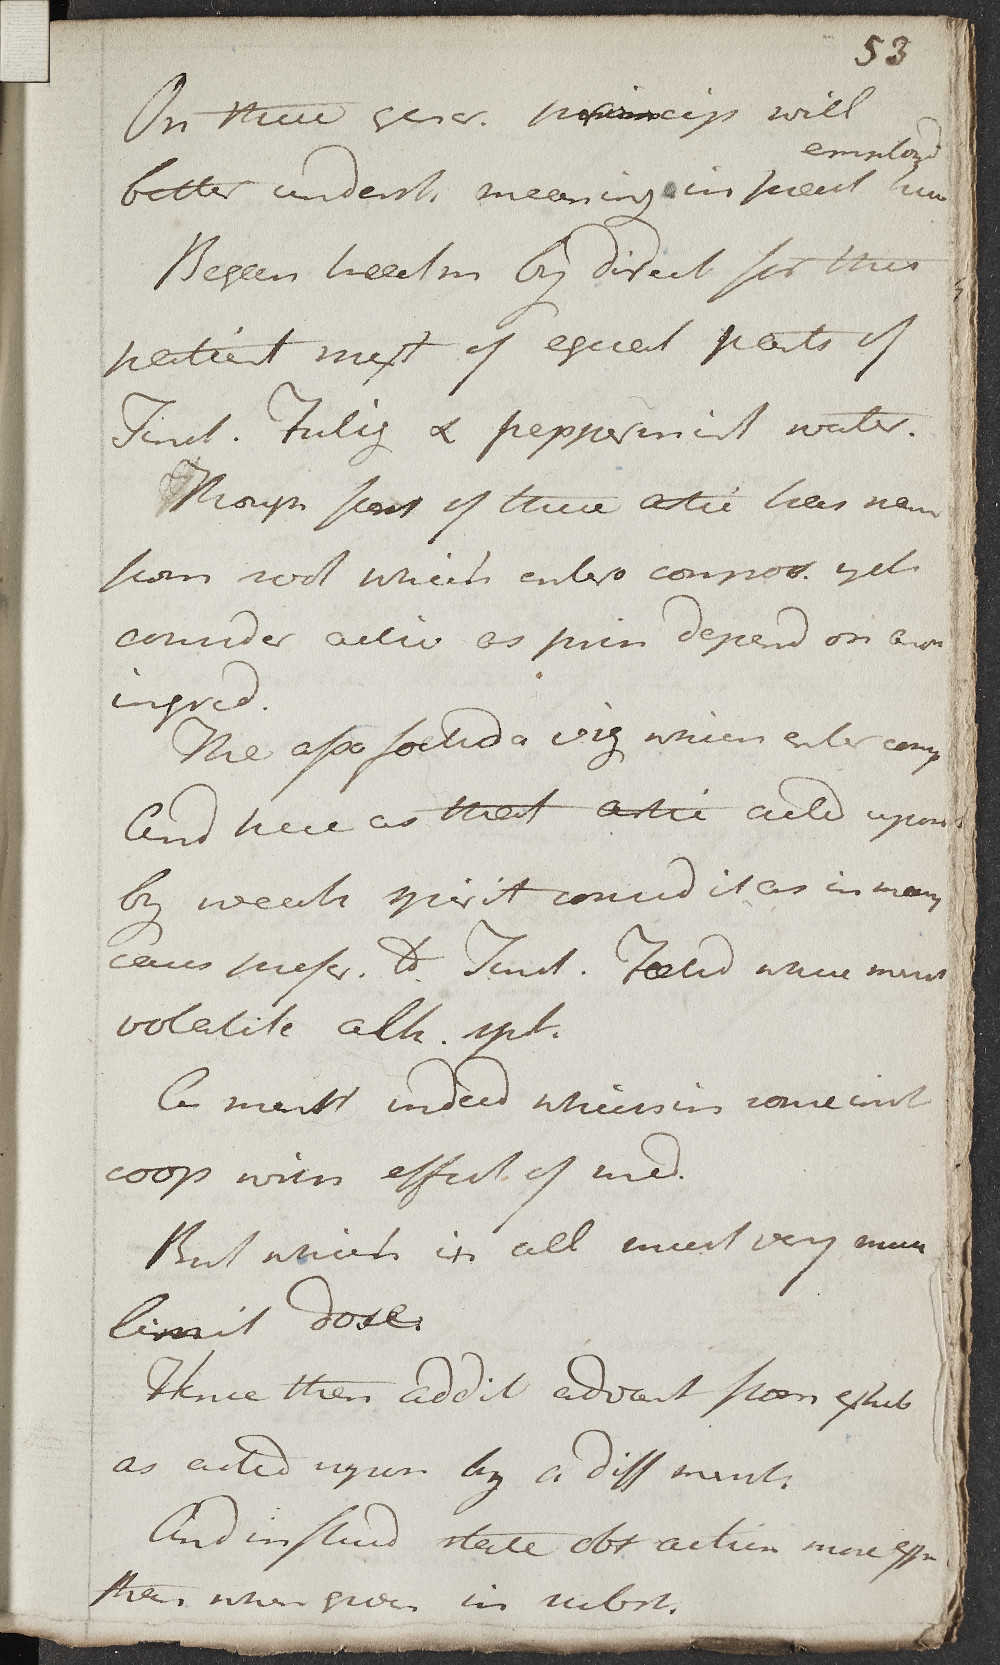 53
On these gener. princip will
employd
better underst. meaning in part
Began treatm by direct for this
patient mixt of equal parts of
Tinct. Fulig & peppermint water.
Though part of these artic has nam
from soot which enters compos. yet
consider activ as prin depend on anor
ingred.
The assa foetida viz which enter comp
And here as that artic acted upon
by weak spirit consid it as in many
cases prefer. to Tinct. Foetid where menst
volatile alk. spt.
A menst indeed which in some inst
coop with effect of med.
But which in all must very much
limit dose.
Hence then addit advant from exhib
as acted upon by a diff menst.
And in fluid state obs action more
than when given in subst.